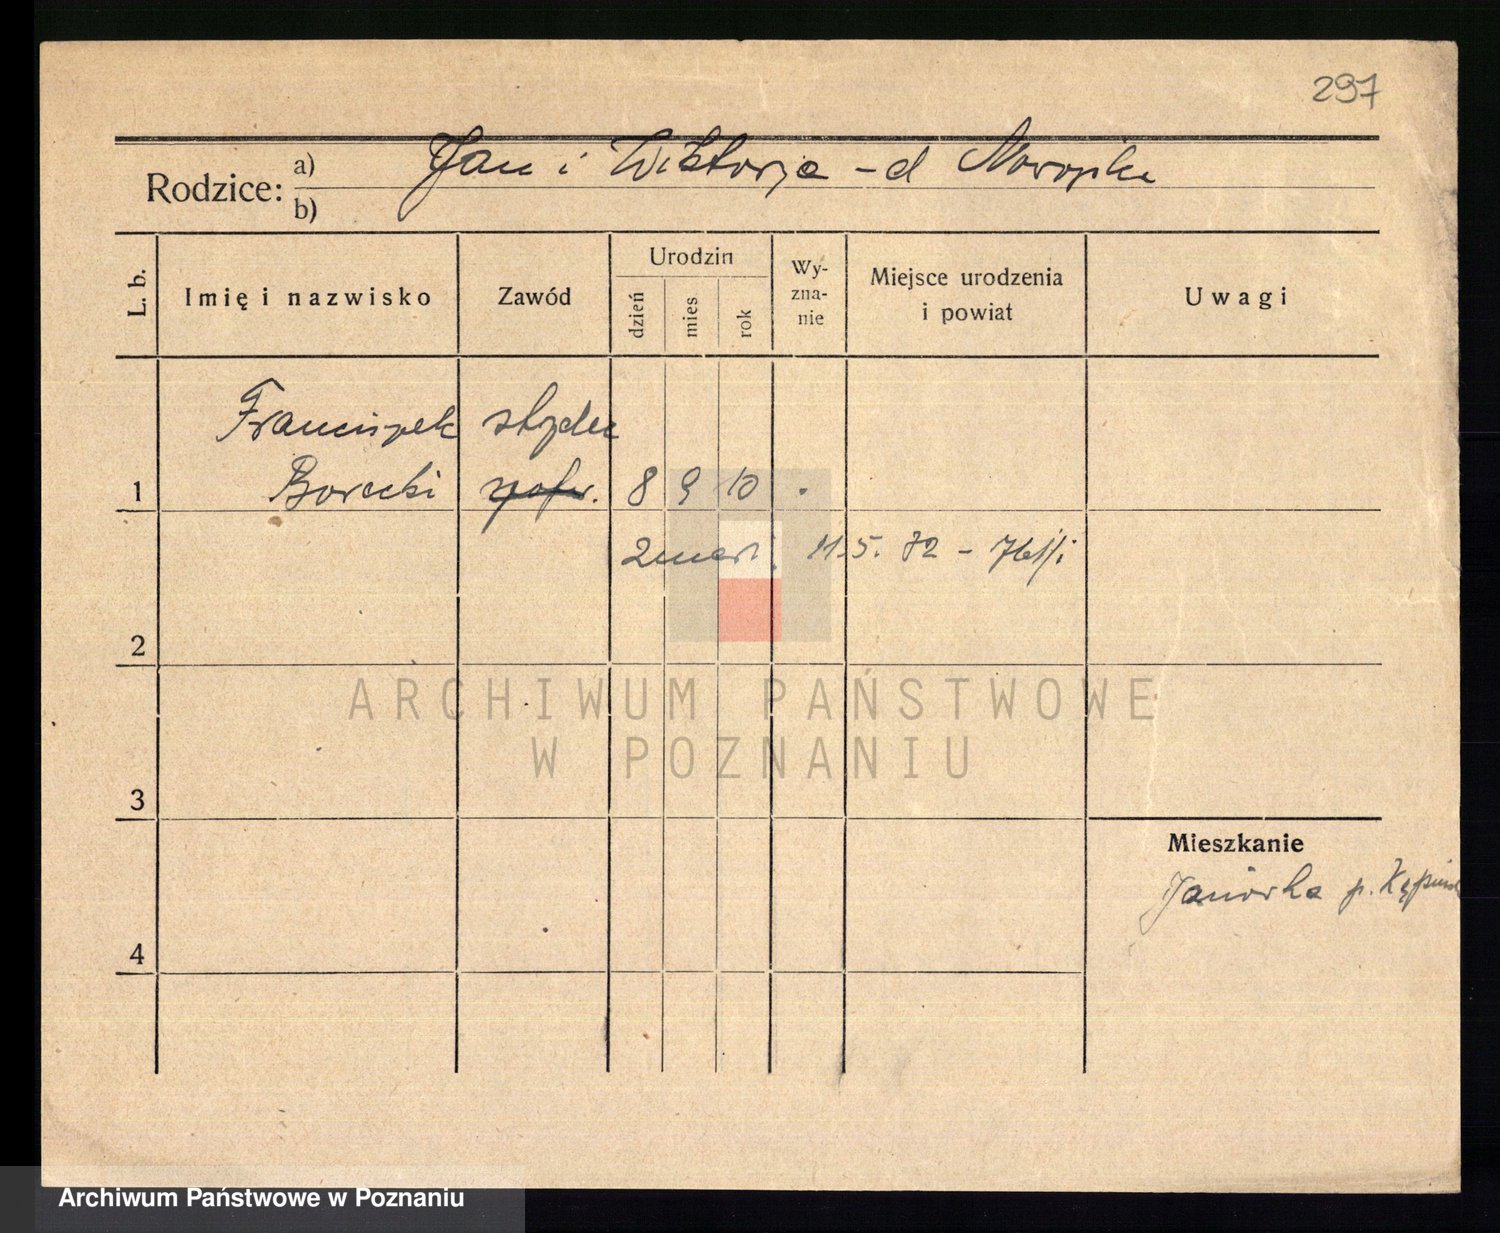 297
Rodzice: a) Jan i Wiktorja - d
b)
L. b.
Imię i nazwisko
Zawód
Urodzin
dzień
mies
rok
Wy-
zna-
nie
Miejsce urodzenia
i powiat
Uwagi
Franciszek
1 Borecki 8 9 10
zmarł 11.5. 72 -
2
3
Mieszkanie
Janówka p.
4
ARCHIWUM PAŃSTWOWE
W POZNANIU
Archiwum Państwowe w Poznaniu